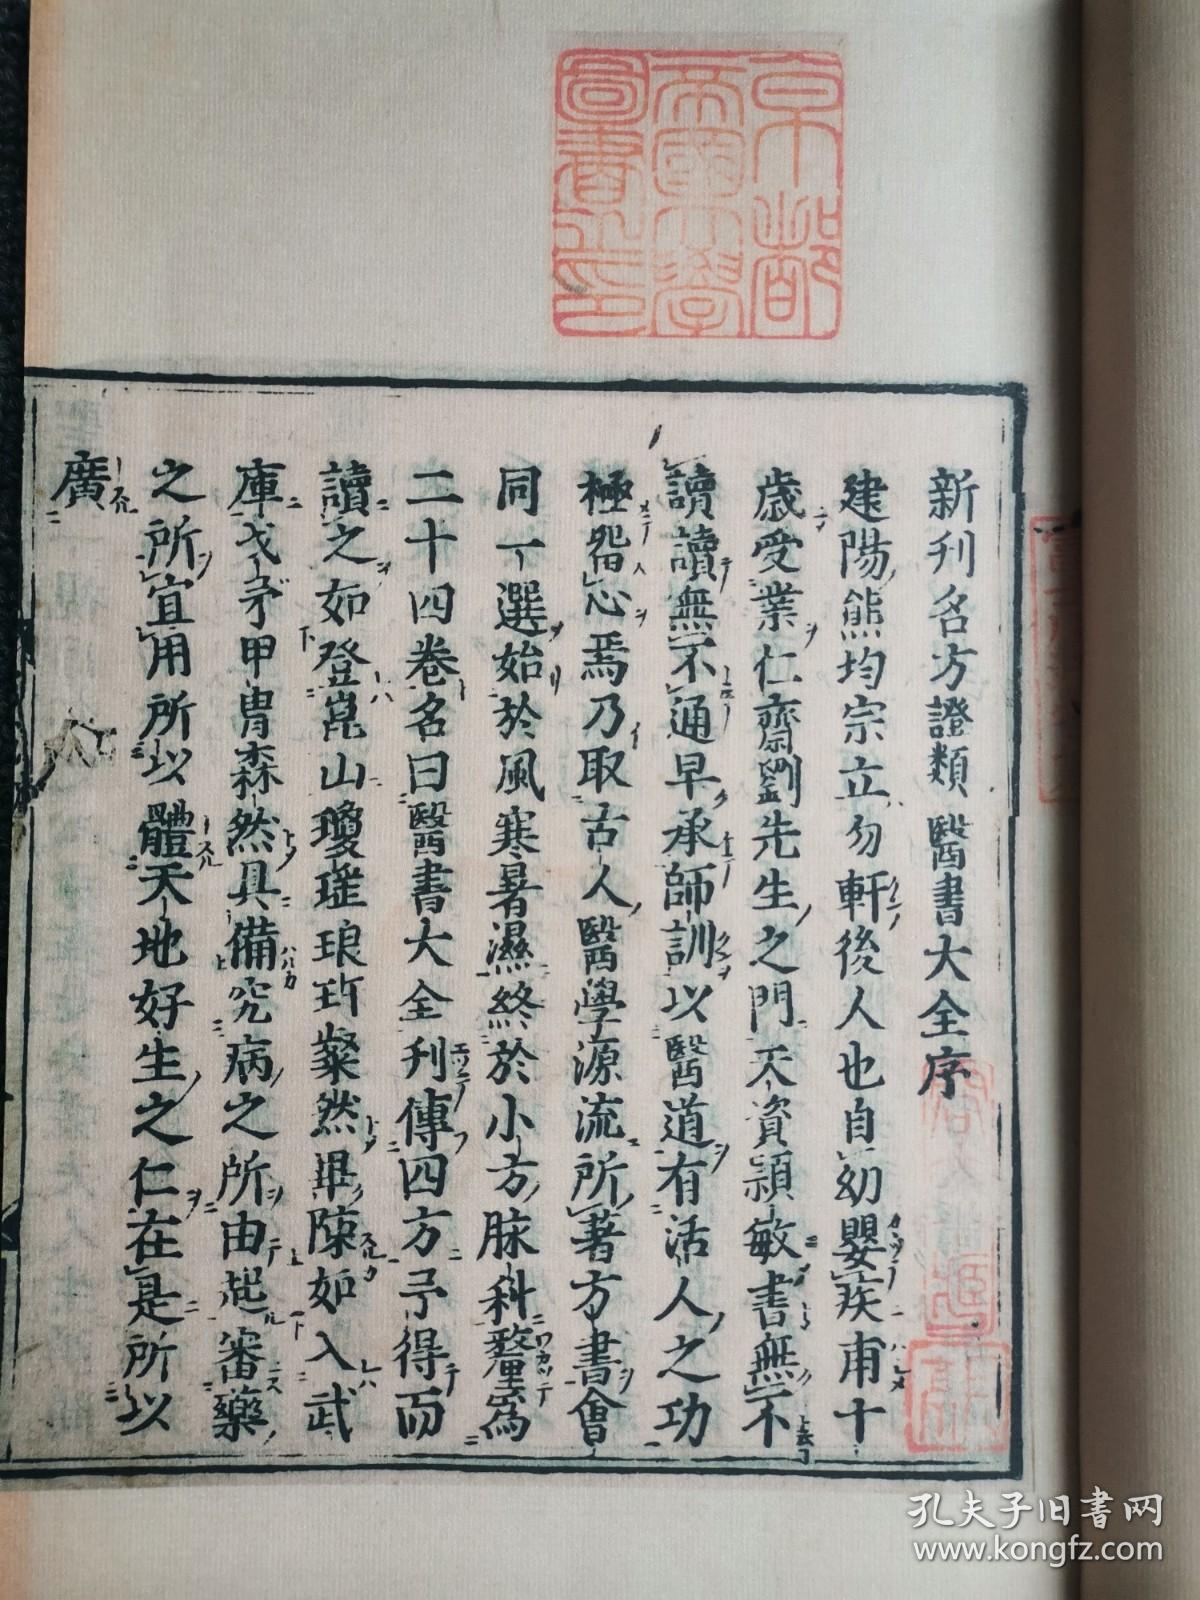 京都
帝國大學
圖書之印
新刊名方證類醫書大全序
建陽熊均宗立勿軒後人也自幼嬰疾甫十
歲受業仁齋劉先生之門天資頴敏書無不
讀讀無不通早承師訓以醫道有活人之功
極留心焉乃取古人醫學源流所著方書會
同一選始於風寒暑濕終於小方脉科釐為
二十四卷名曰醫書大全刊傳四方予得而
讀之如登崑山瓊瑤琅玕粲然畢陳如入武
庫戈矛甲冑森然具備究病之所由起審藥
之所宜用所以體天地好生之仁在是所以
廣
孔夫子旧书网
www.kongfz.com